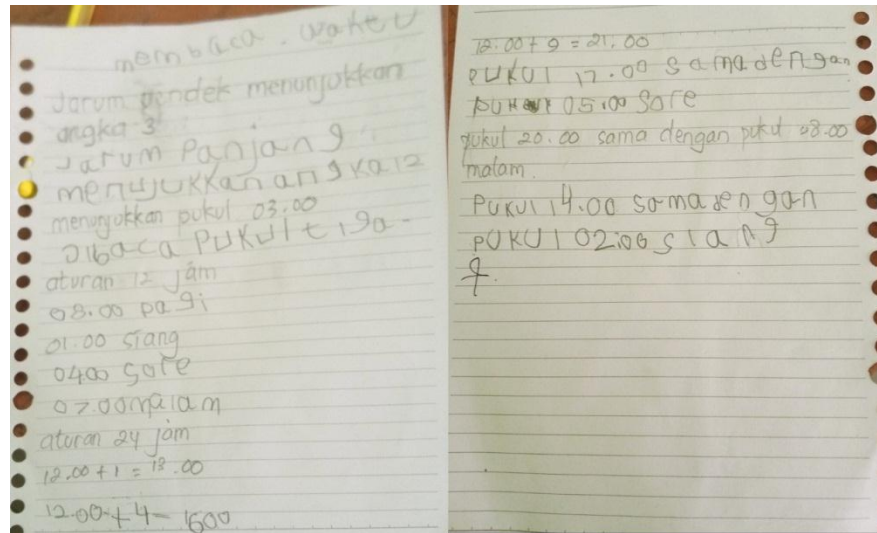 membaca. waktu
Jarum pendek menunjukkan
angka 3
Jarum Panjang
menujukkan angka 12
menunjukkan pukul 03.00
Dibaca PUKUl tiga.
aturan 12 jam
08.00 pagi
01.00 siang
0400 Sore
07.00 malam
aturan 24 jam
12.00 + 1 = 13.00
12.00 + 4 = 1600
12.00 + 9 = 21.00
PUKUl 17.00 sama dengan
05.00 Sore
pukul 20.00 sama dengan pukul 08.00
malam.
PUKUl 14.00 sama dengan
PUKUl 02.00 siang